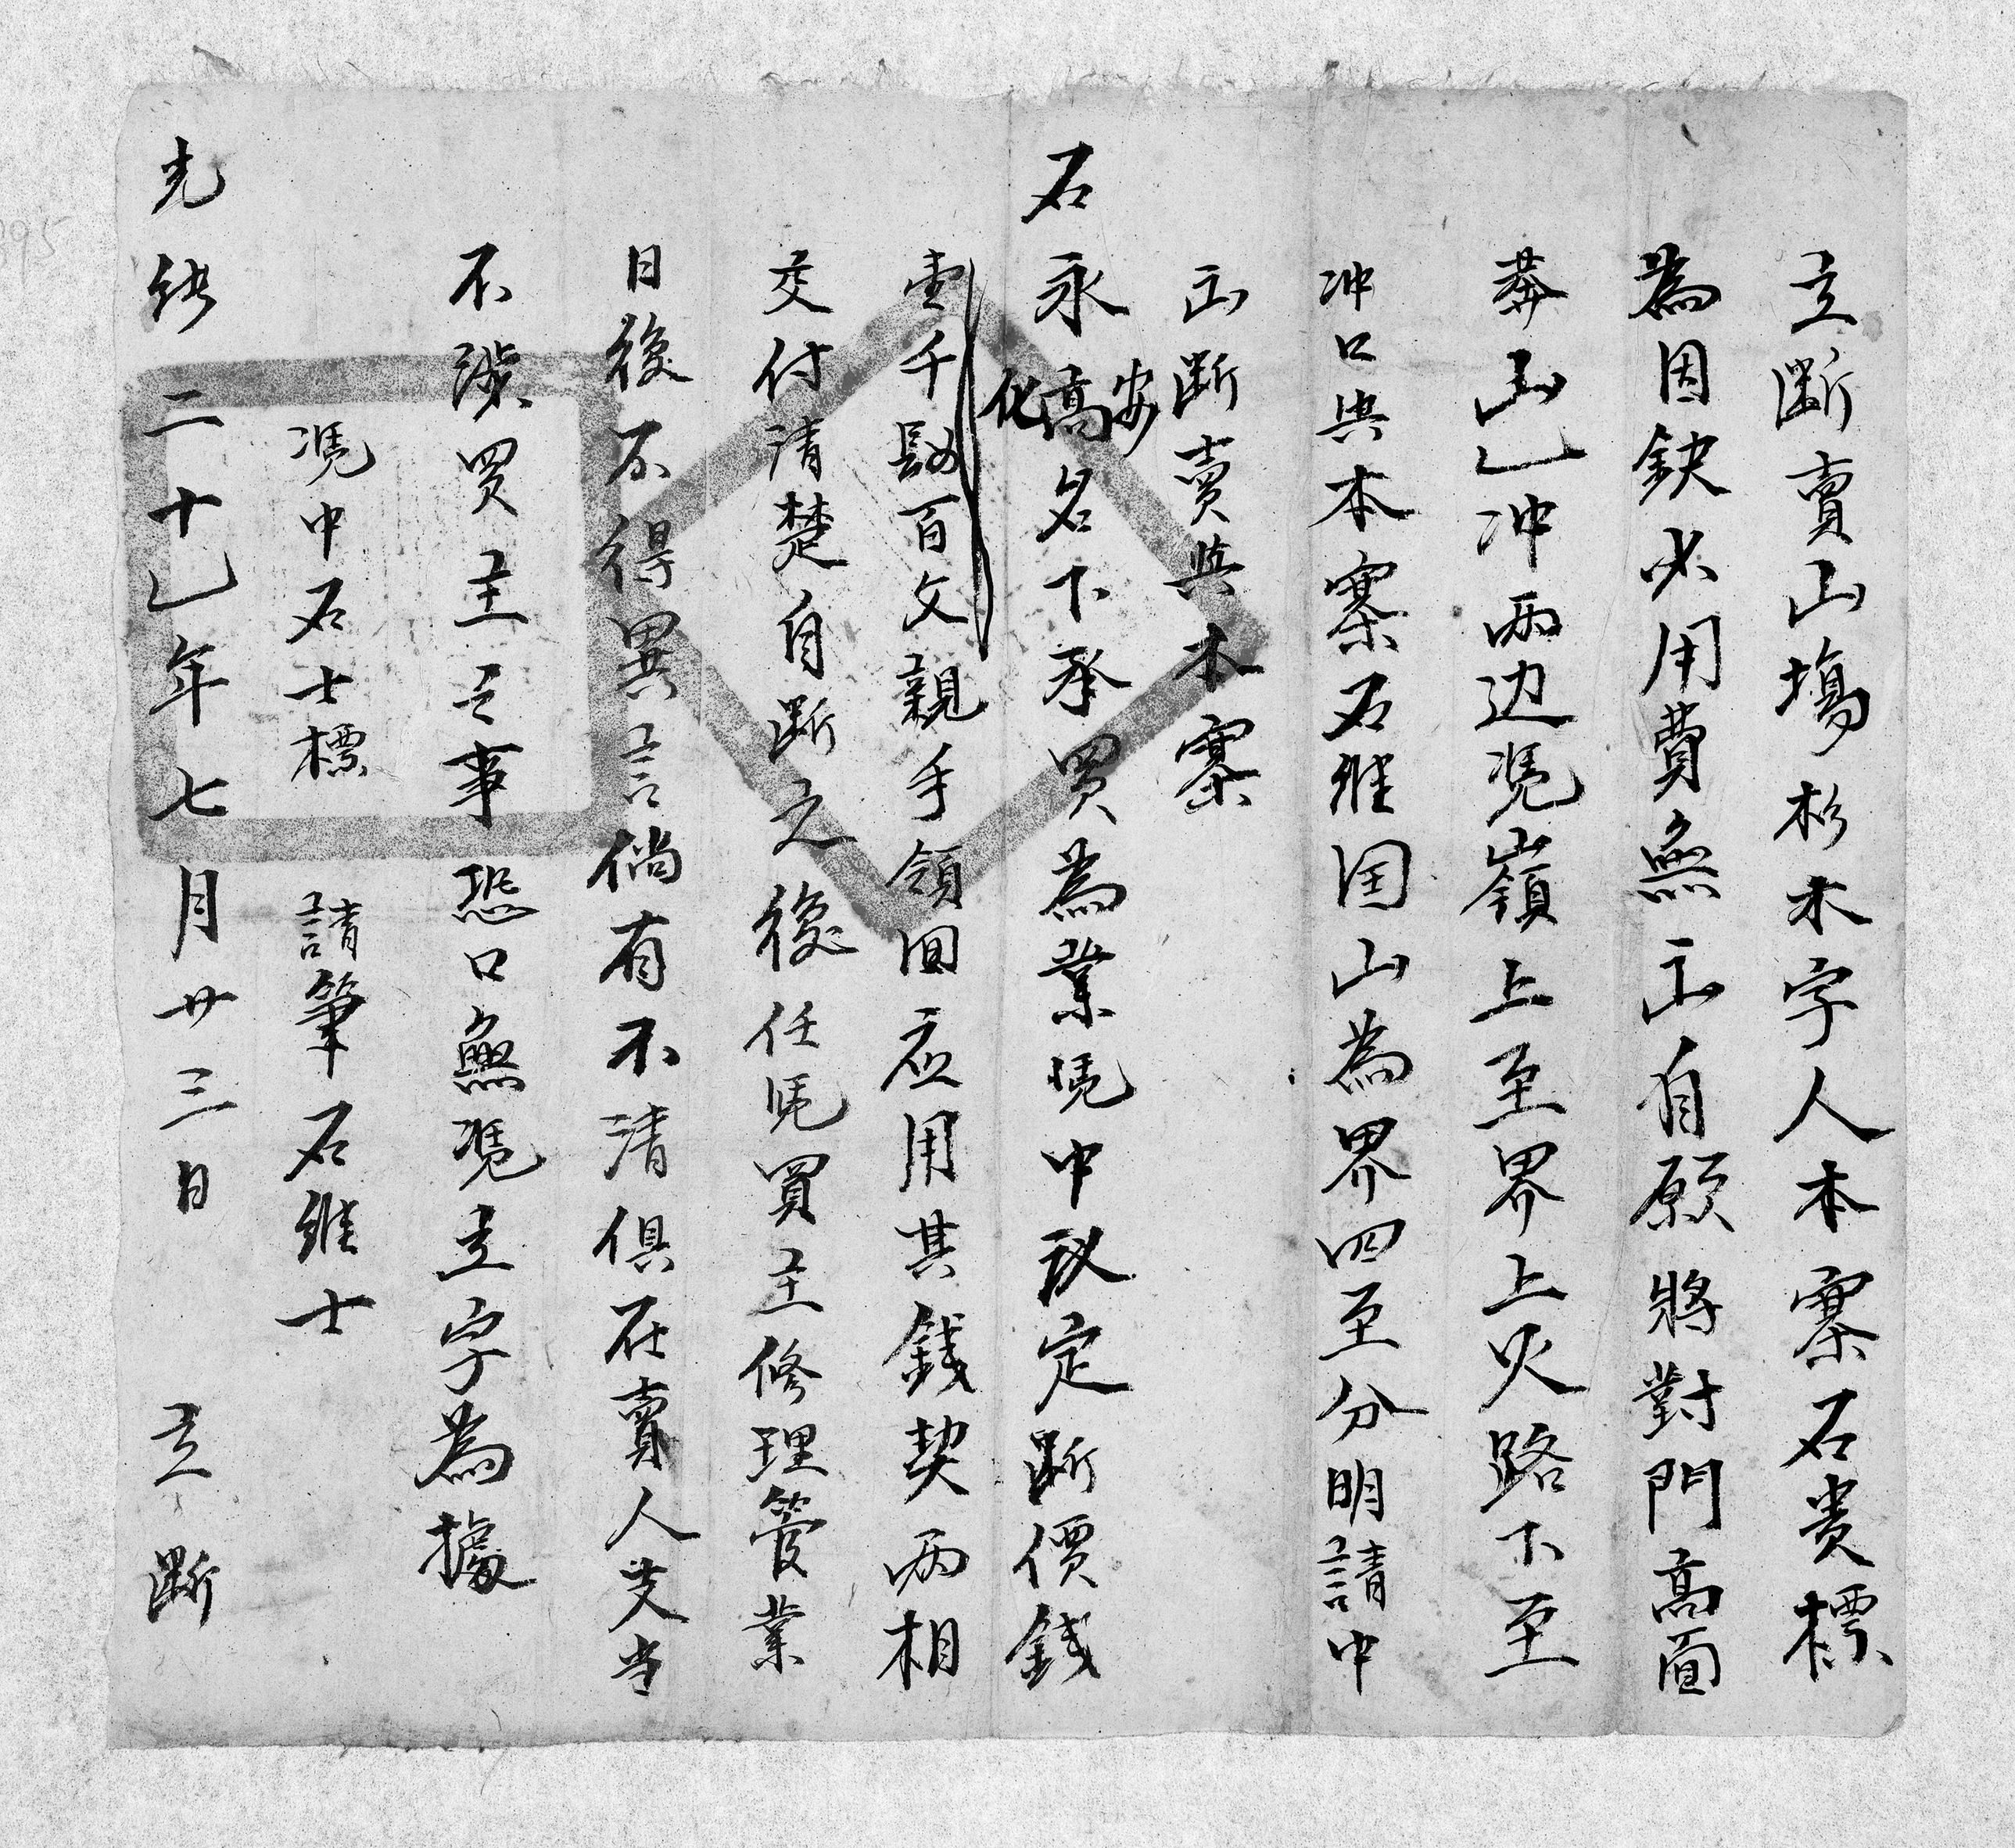 立斷賣山塲杉木字人本寨石贵標
為因缺少用費無出自願將對門高面
莽山凹冲兩边凴嶺上至界上火路下至
冲口與本寨石維田山為界四至分明請中
出斷賣與本寨
石永安高化名下承買為業凴中议定斷價錢
壹千捌百文親手領回应用其錢契两相
交付清楚自斷之後任凴買主修理管業
日後不得異言倘有不清俱在賣人支当
不渉買主之事恐口無凴立字為據
凴中石士標 請筆石維士
光緒二十七年七月廿三日 立斷